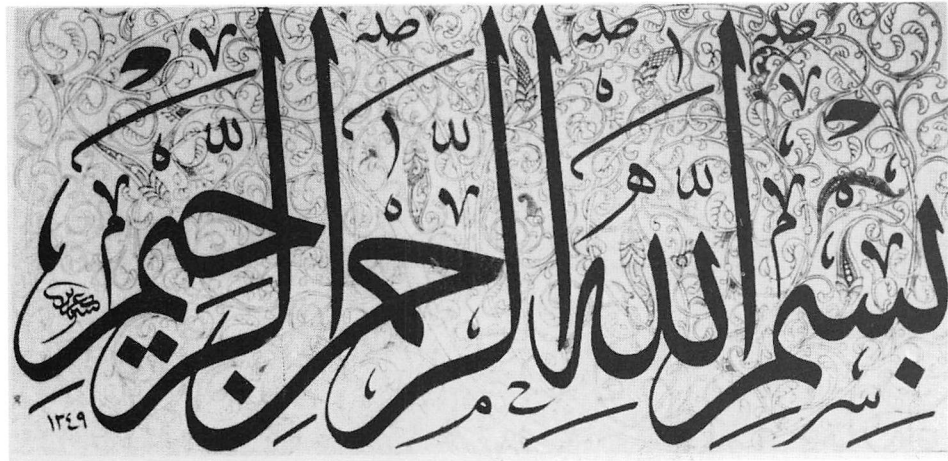 بِسْمِ اللّٰهِ الرَّحْمٰنِ الرَّحِيمِ
١٣٤٩